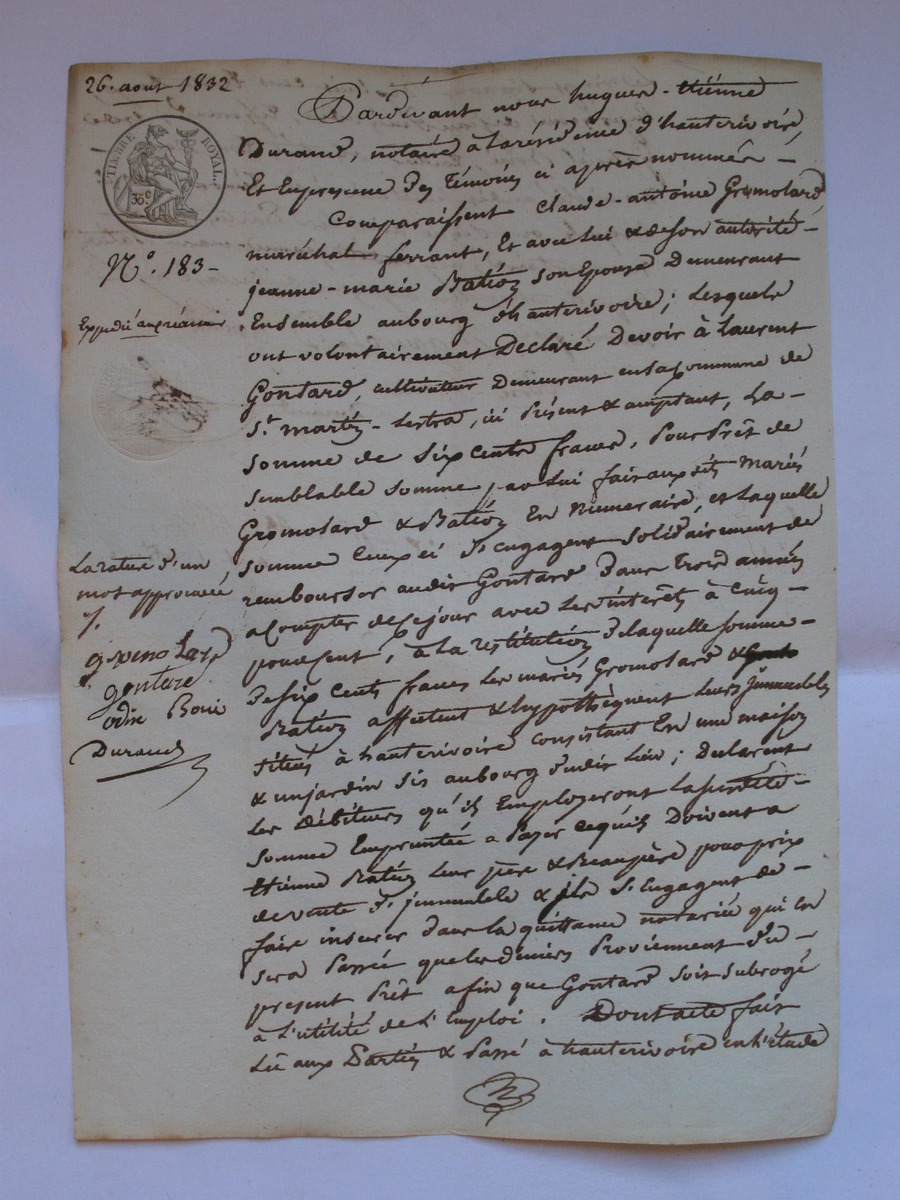 26. aout 1832
TIMBRE ROYAL
35 c
N.° 183-
Expedié au créancier
La rature d'un
mot approuvée
gromolard
gontard
odin Boni
Durand
Pardevant nous hugues-étiénne
Durand, notaire à la résidence d'hauterivoire,
Et En presence Des Témoins ci après nommés -
Comparaissent Claude-antoine Gromolard
maréchal ferrant, Et avec Lui & de son autorité -
jeanne-marie Bation son Epouse Demeurant
Ensemble au bourg d'hauterivoire; Lesquels
ont volontairement Déclaré Devoir à Laurent
Gontard, cultivateur Demeurant en la Commune de
S.t martin-Lestra, ici Présent & acceptant, La -
somme de Six cents francs, Pour Prêt de
semblable somme par Lui fait aux dits Mariés
Gromolard & Bation En Numeraire, et Laquelle
somme Ceux ci S'engagent Solidairement de
rembourser audit Gontard Dans trois années
a Compter de ce jour avec Les intérêts à Cinq -
pour cent, à La restitution De laquelle somme -
De six cents francs les mariés Gromolard &
Bation affectent & hypothèquent Leurs Immeubles
situés à hauterivoire consistant En une maison
& un jardin Sis au bourg Dudit Lieu; Declarent
Les Débiteurs qu'ils Employeront La susdite -
somme Empruntée a Payer ce qu'ils Doivent a
étiénne Bation Leur père & Beaupère pour prix
de vente D'immeuble & ils S'Engagent de -
faire inserer Dans la quittance notariée qui en
sera Passée que les deniers Proviennent Du -
present Prêt afin que Gontard soit subrogé
à L'utilité de L'Emploi. Dont acte fait
Lu aux Parties & Passé à hauterivoire en L'étude